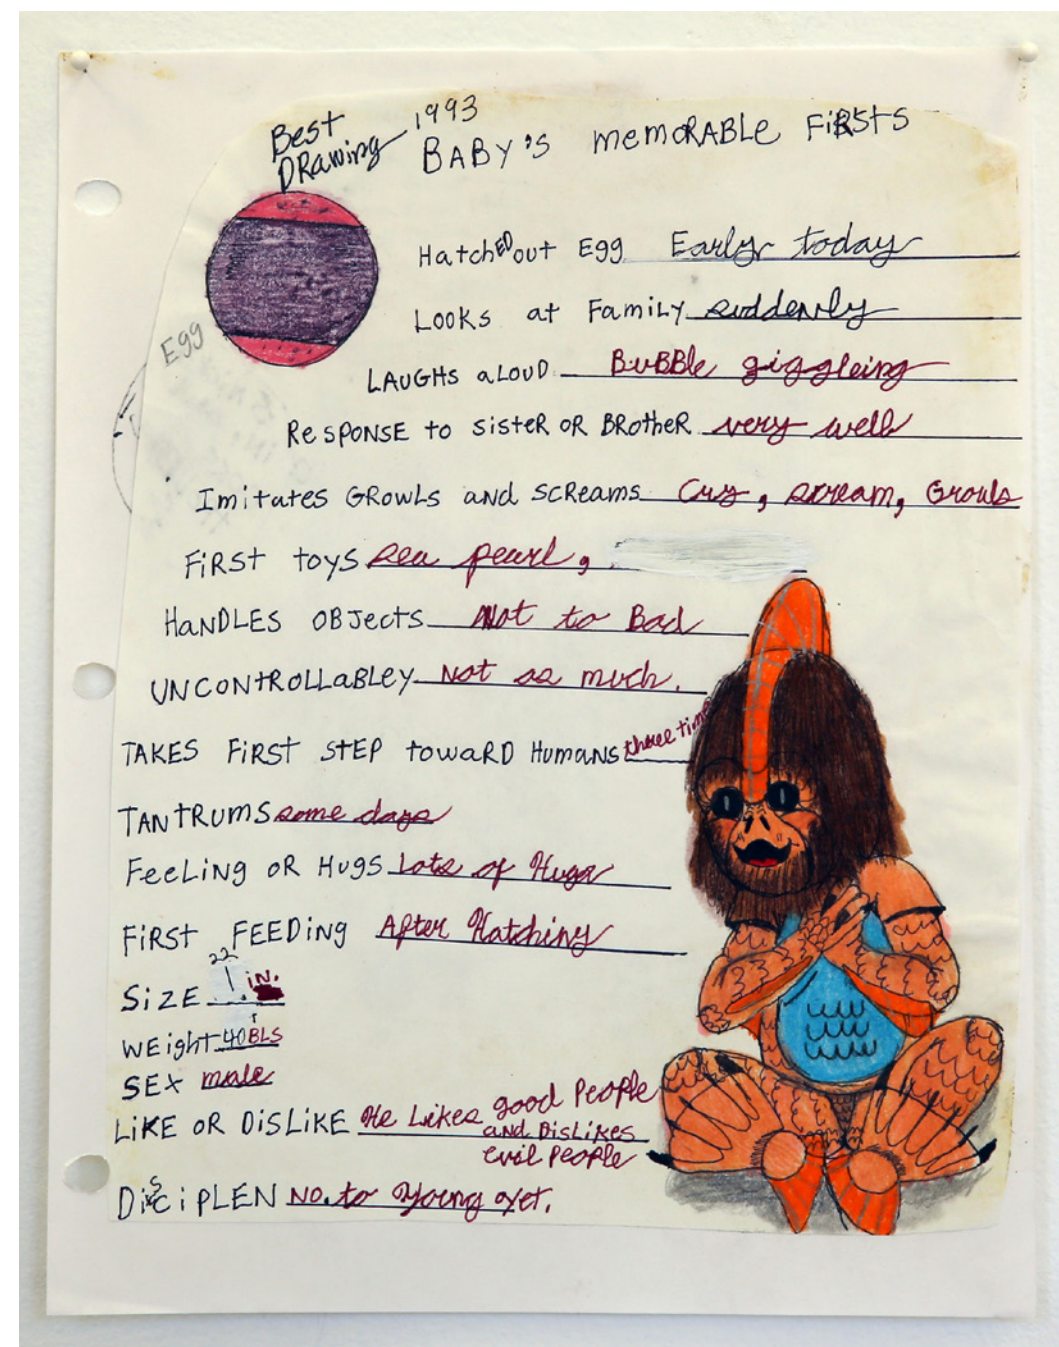 Best
DRawing
1993
BABY'S MEMORABLE FiRSTS
HatchEDout Egg Early today
Looks at Family suddenly
Egg
LAUGHS aLOUD BuBBle giggleing
ResPONSE to sisteR OR BRotheR very well
Imitates GROWLS and SCReams Cry, scream, Growls
FiRST toys sea pearl,
HaNDLES OBJects Not to Bad
UNCONtROLLaBLEy Not as much.
TAKES FiRST StEP towaRD Humans three time
TANtRUMS some days
FeeLiNg oR HugS Lots of Hugs
FiRST FEEDiNg After Hatching
22
SiZE 1 iN.
WEight 40 BLS
SEX male
LiKE OR DiSLiKE He Likes good People
and DisLikes
evil PEoPle
DiSCiPLEN NO. to Young Yet.